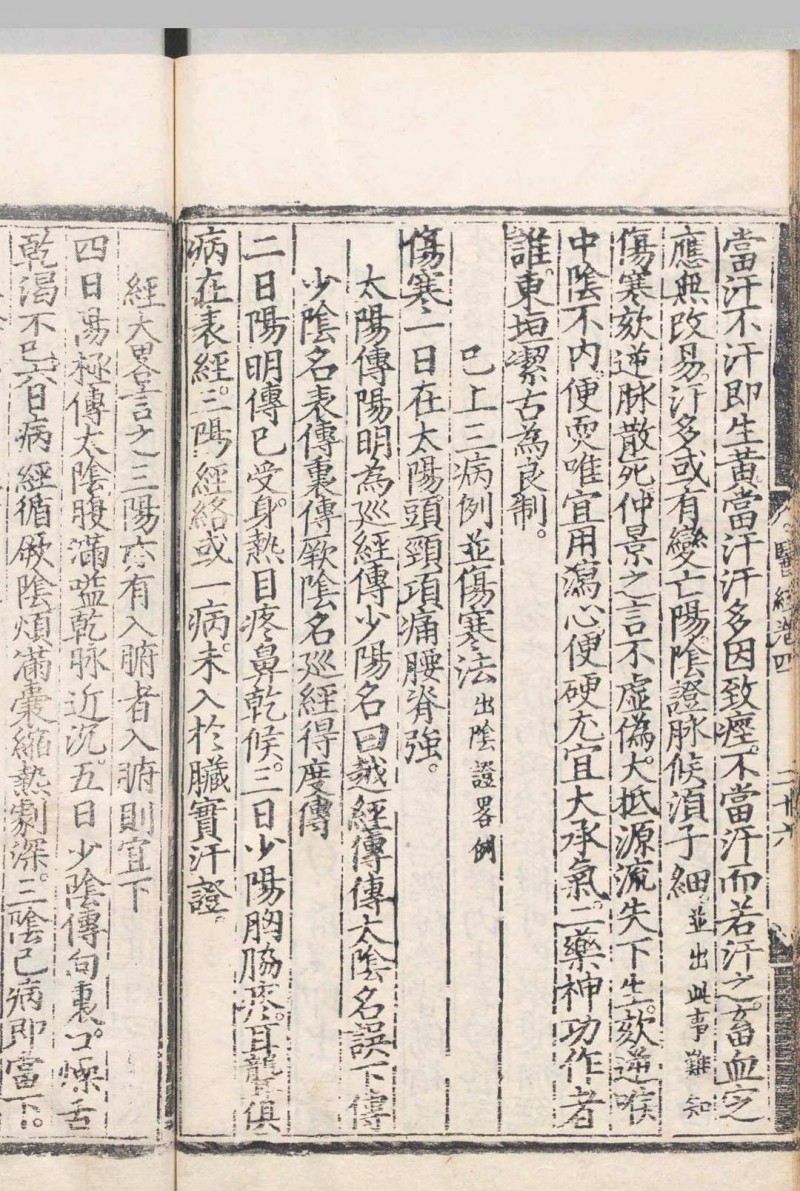 醫經卷四
二十六
當汗不汗即生黃當汗汗多因致痙。不當汗而若汗之。畜血定
應無改易。汗多或有變亡陽。陰證脉候湏子細。並出此事難知
傷寒欬逆脉散死仲景之言不虛偽。大抵源流失下生。欬逆喉
中陰不內。便耎唯宜用瀉心便硬尤宜大承氣。二藥神功作者
誰。東垣潔古為良制。
已上三病例並傷寒法出陰證畧例
傷寒一日在太陽。頭頸項痛腰脊強。
太陽傳陽明為廵經傳少陽名曰越經傳傳太陰名誤下傳
少陰名表傳裏傳厥陰名廵經得度傳
二日陽明傳已受。身熱目疼鼻乾候。三日少陽胸脇疼。耳聾俱
病在表經。三陽經絡或一病。未入於臟實汗證。
經大畧言之三陽亦有入腑者入腑則宜下
四日陽極傳太陰腹滿嗌乾脉近沉。五日少陰傳向裏。口燥舌
乾渴不已六日病經循厥陰煩滿囊縮熱劇深。三陰已病即當下。